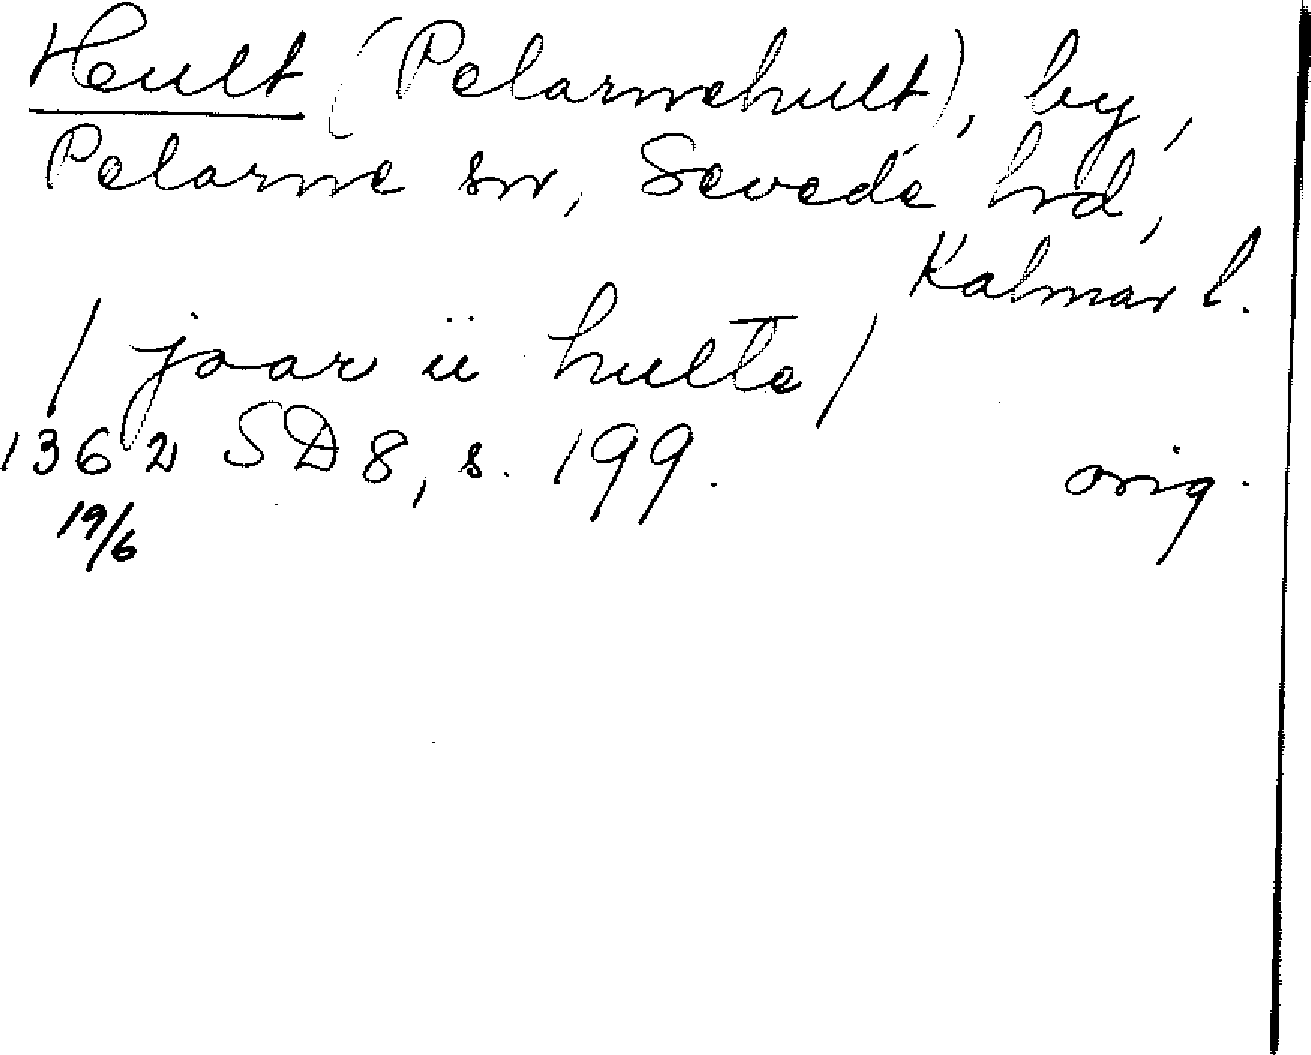 Hult (Pelarnehult), by,
Pelarne sn, Sevede hd,
Kalmar l.
/ joar ii hulte /
1362 SD 8, s. 199. orig.
19/6